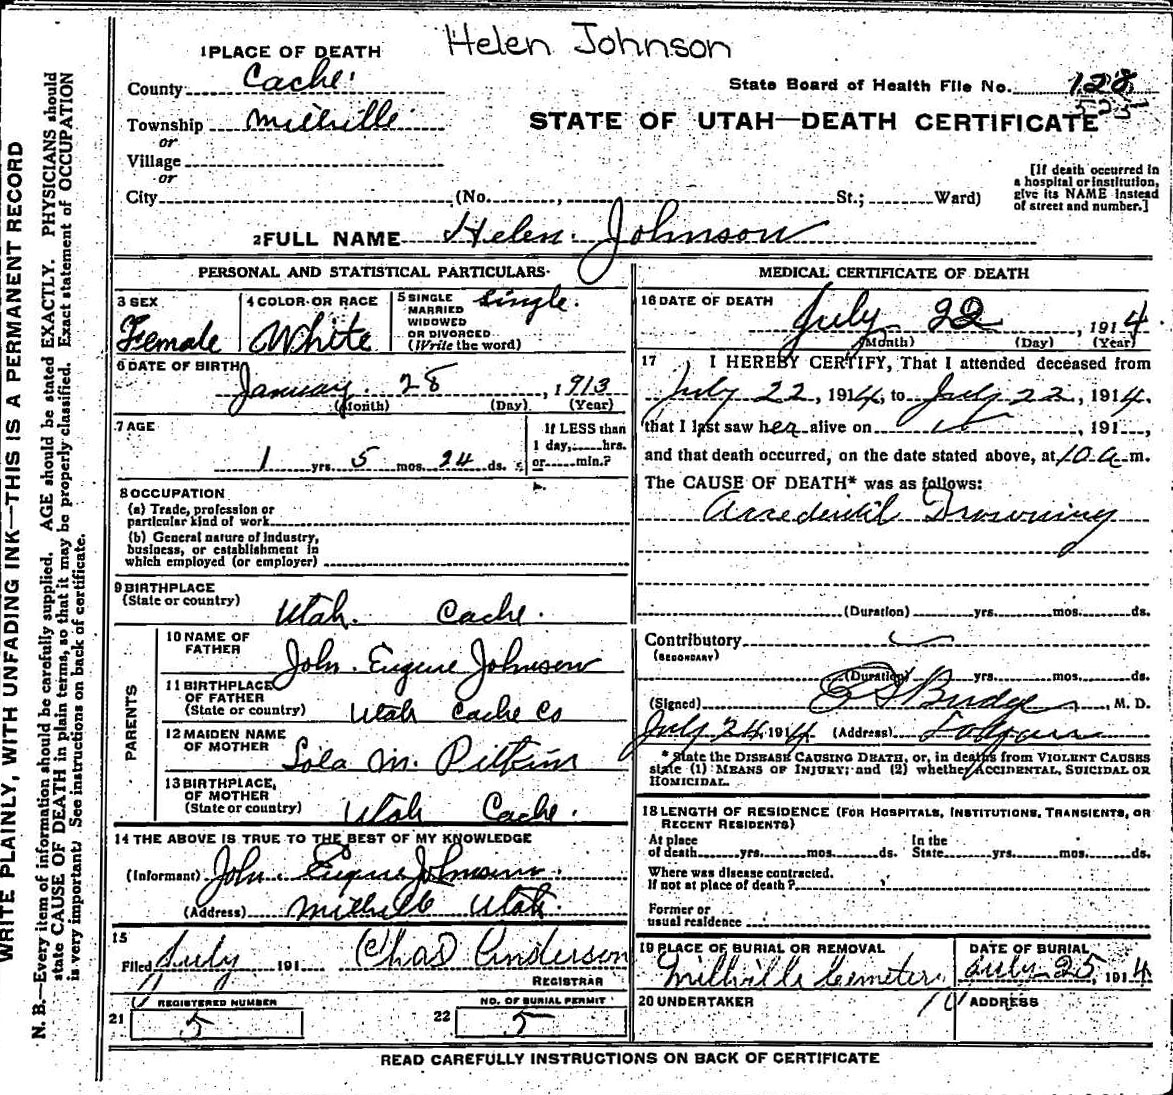 Helen Johnson
1 PLACE OF DEATH
County Cache
State Board of Health File No. 128
Township Millville
or
STATE OF UTAH—DEATH CERTIFICATE
Village
or
City (No. , St.; Ward)
[If death occurred in
a hospital or institution,
give its NAME instead
of street and number.]
2 FULL NAME Helen Johnson
PERSONAL AND STATISTICAL PARTICULARS
3 SEX
Female
4 COLOR OR RACE
White
5 SINGLE
MARRIED
WIDOWED
OR DIVORCED
(Write the word)
Single.
6 DATE OF BIRTH
January 28, 1913
(Month) (Day) (Year)
7 AGE
1 yrs. 5 mos. 24 ds.
If LESS than
1 day, hrs.
or min.?
8 OCCUPATION
(a) Trade, profession or
particular kind of work
(b) General nature of industry,
business, or establishment in
which employed (or employer)
9 BIRTHPLACE
(State or country)
Utah. Cache.
PARENTS
10 NAME OF
FATHER
John Eugene Johnson
11 BIRTHPLACE
OF FATHER
(State or country)
Utah Cache Co
12 MAIDEN NAME
OF MOTHER
Lola M. Pitkin
13 BIRTHPLACE,
OF MOTHER
(State or country)
Utah Cache.
14 THE ABOVE IS TRUE TO THE BEST OF MY KNOWLEDGE
(Informant) John Eugene Johnson.
(Address) Millville Utah.
15
Filed July 191 Chas Anderson
REGISTRAR
REGISTERED NUMBER
21 5
NO. OF BURIAL PERMIT
22 5
MEDICAL CERTIFICATE OF DEATH
16 DATE OF DEATH
July 22, 1914
(Month) (Day) (Year)
17 I HEREBY CERTIFY, That I attended deceased from
July 22, 1914, to July 22, 1914.
that I last saw her alive on , 191 ,
and that death occurred, on the date stated above, at 10 a m.
The CAUSE OF DEATH* was as follows:
Accedentil Drowning
(Duration) yrs. mos. ds.
Contributory
(SECONDARY)
(Duration) yrs. mos. ds.
(Signed) Budge, M. D.
July 24, 1914 (Address) Logan
*State the DISEASE CAUSING DEATH, or, in deaths from VIOLENT CAUSES
state (1) MEANS OF INJURY; and (2) whether ACCIDENTAL, SUICIDAL OR
HOMICIDAL.
18 LENGTH OF RESIDENCE (FOR HOSPITALS, INSTITUTIONS, TRANSIENTS, OR
RECENT RESIDENTS)
At place
of death yrs. mos. ds.
In the
State yrs. mos. ds.
Where was disease contracted.
If not at place of death?
Former or
usual residence
19 PLACE OF BURIAL OR REMOVAL
Millville Cemetery
DATE OF BURIAL
July 25, 1914
20 UNDERTAKER
ADDRESS
READ CAREFULLY INSTRUCTIONS ON BACK OF CERTIFICATE
WRITE PLAINLY, WITH UNFADING INK—THIS IS A PERMANENT RECORD
N. B.—Every item of information should be carefully supplied. AGE should be stated EXACTLY. PHYSICIANS should
state CAUSE OF DEATH in plain terms, so that it may be properly classified. Exact statement of OCCUPATION
is very important. See instructions on back of certificate.